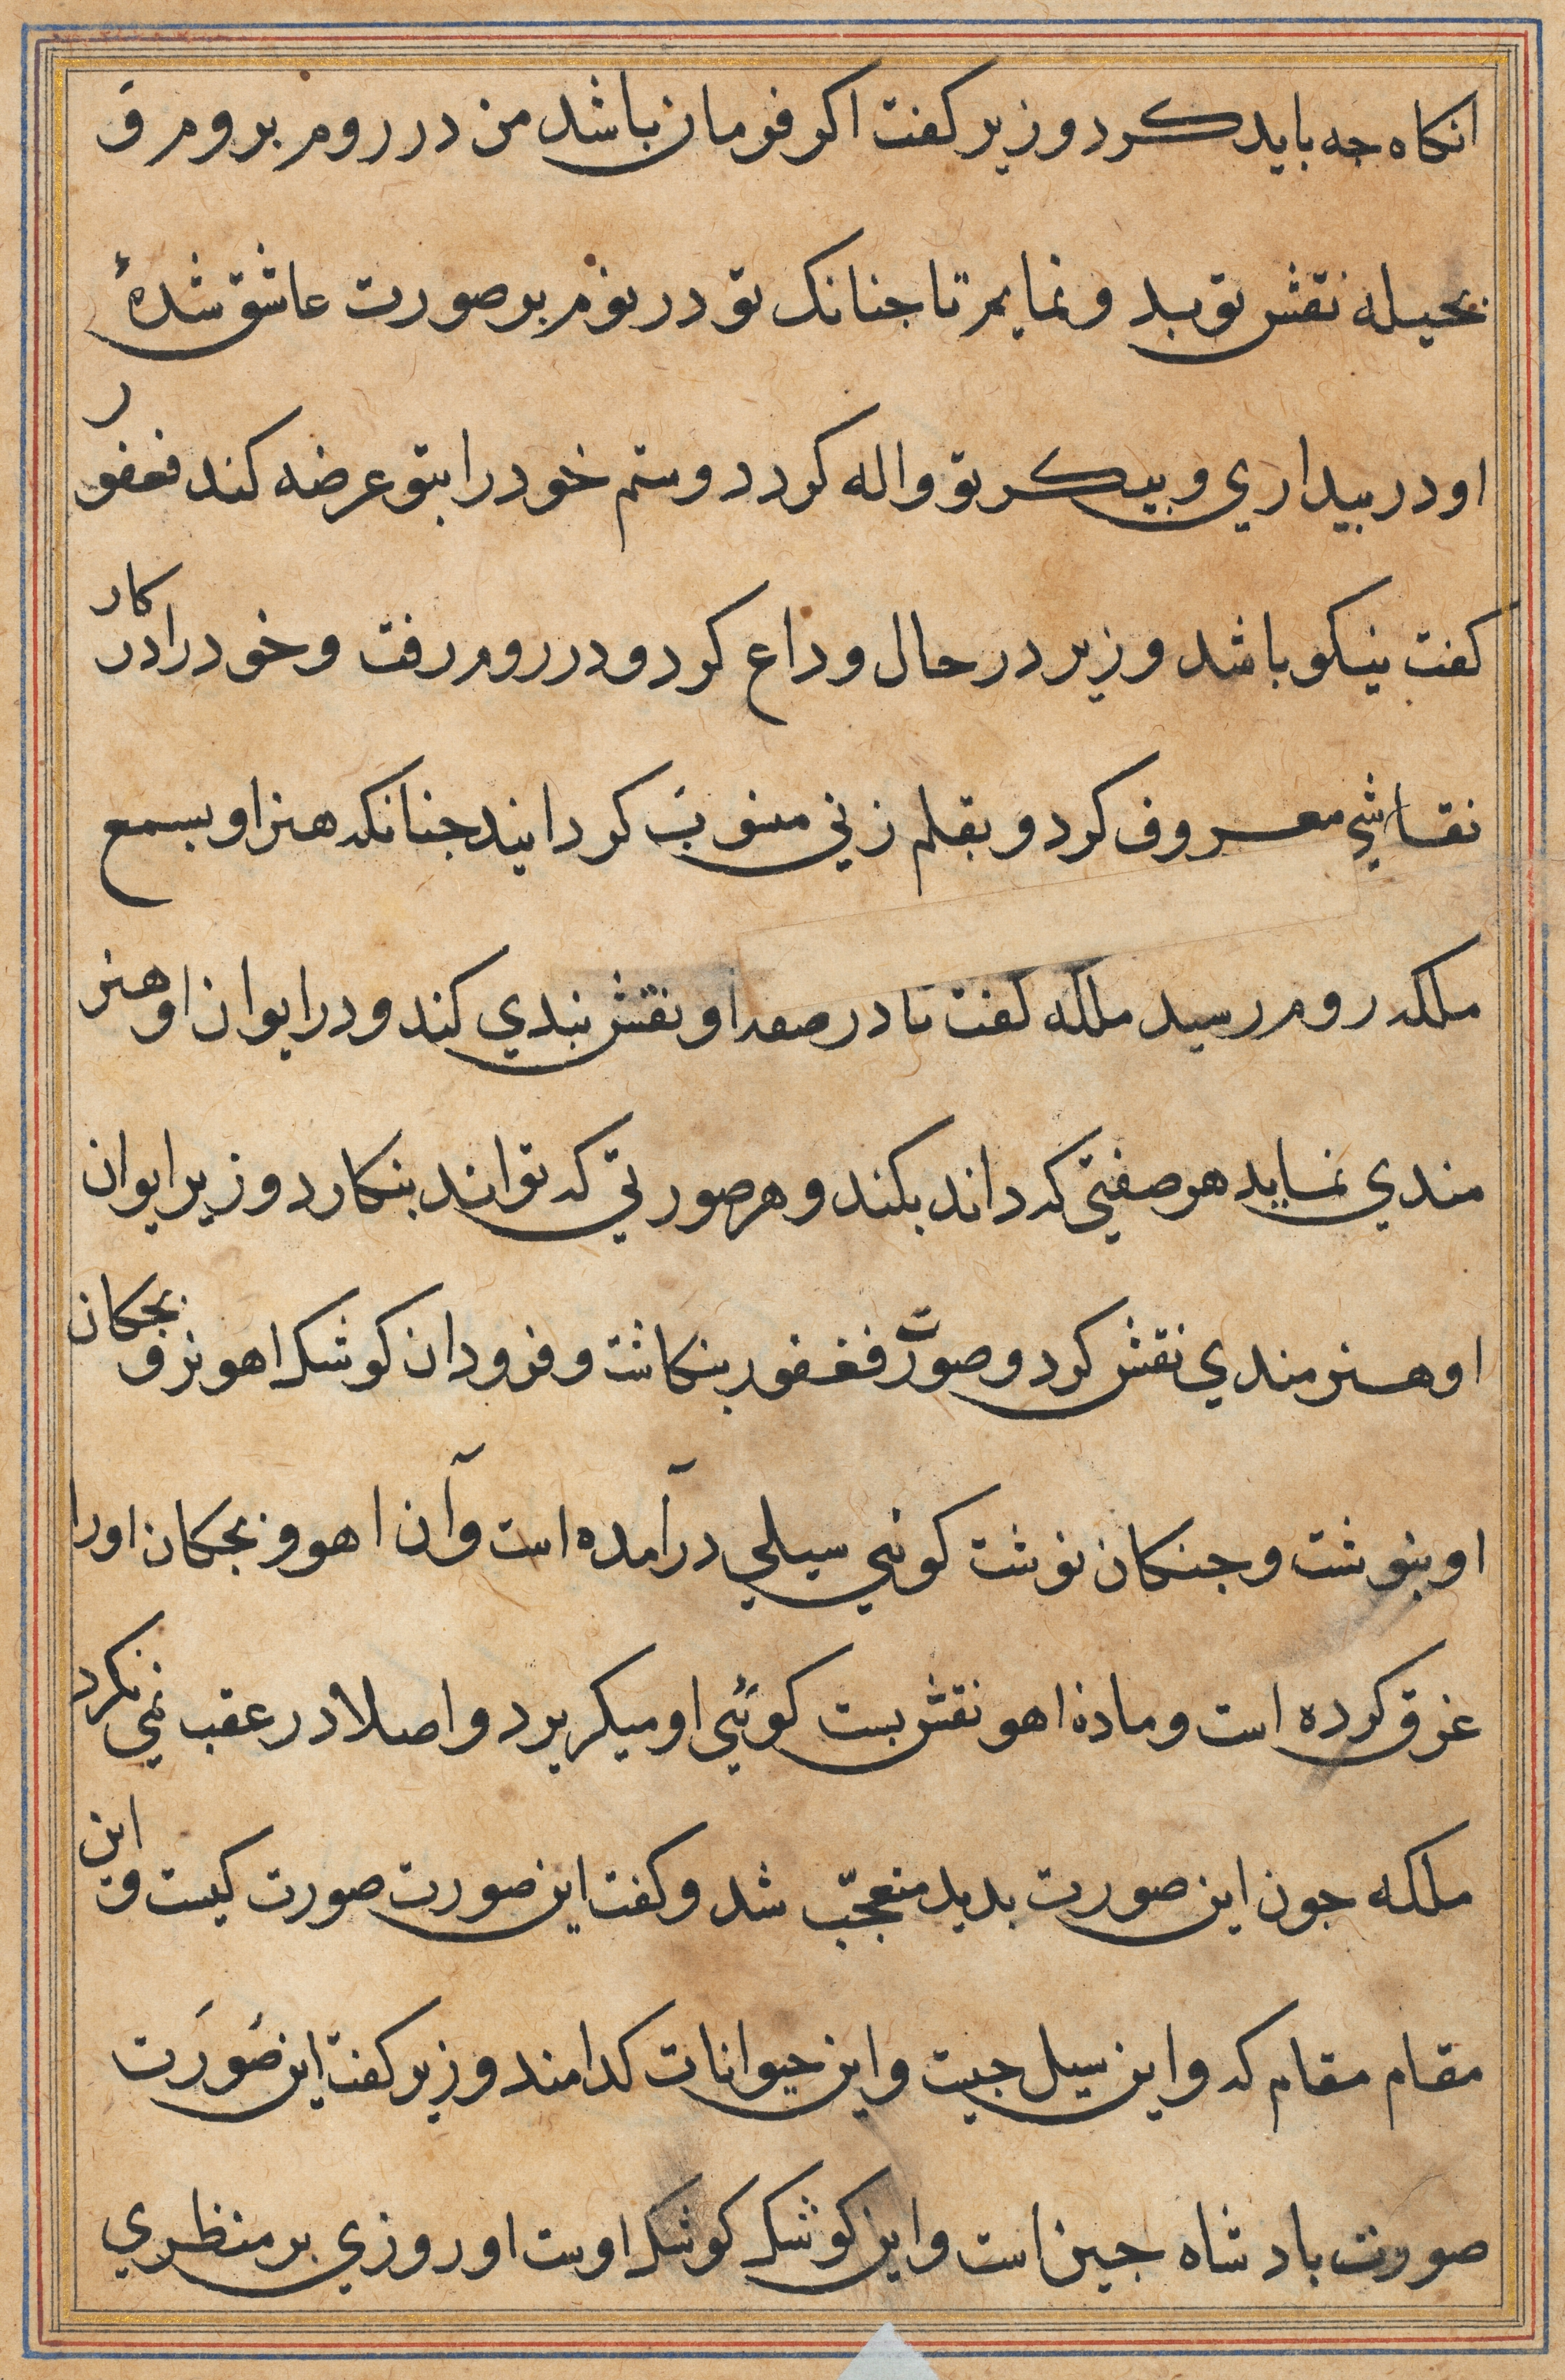 انکاه جه باید کرد وزیر کفت اکر فرمان باشد من در روم بروم و
بحیله نقش تو بد و نمایم تا جنانک تو در نوم بر صورت عاشق شدهٔ
او در بیداری و بیکر تو واله کردد و ستم خود را بتو عرضه کند فغفور
کفت نیکو باشد وزیر در حال وداع کرد و در روم رفت و خود را در کار
نقاشی معروف کرد و بقلم زنی منسوب کردانید جنانکه هنر او بسمع
ملکه روم رسید ملکه کفت تا در صفه او نقش بندی کند و در ایوان او هنر
مندی نماید هر صفتی که داند بکند و هر صورتی که تواند بنکارد وزیر ایوان
او هنرمندی نقش کرد و صورت فغفور بنکاشت و فرود ان کوشک اهو نر و بجکان
او بنوشت و جنکان نوشت کوئی سیلی درآمده است وآن اهو و بجکان اورا
غرق کرده است و ماده اهو نقش بست کوئی او میکریرد و اصلا در عقب نمی نکرد
ملکه جون این صورت بدید متعجّب شد و کفت این صورت صورت کیست و این
مقام مقام که و این سیل جیست و این حیوانات کدامند وزیر کفت این صَورَت
صورت بادشاه جین است و این کوشک کوشک اوست او روزی بر منظری